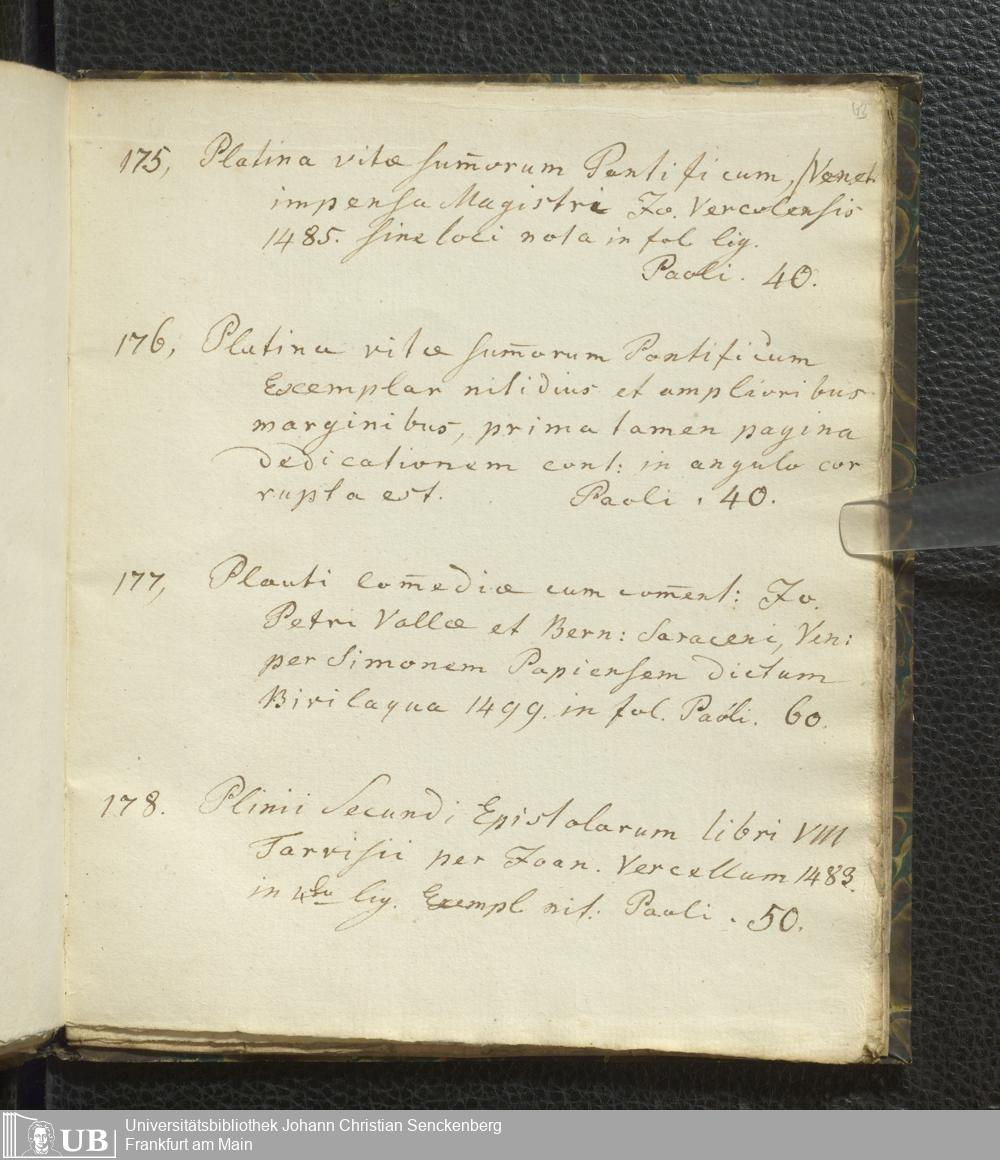 43
175, Platina vitæ sum̄orum Pontificum, Venet.
impensa Magistri Jo. Vercelensis
1485. sine loci nota in fol lig.
Paoli. 40.
176, Platina vitæ sum̄orum Pontificum
Exemplar nitidius et amplioribus
marginibus, prima tamen pagina
dedicationem cont: in angulo cor
rupta est. Paoli . 40.
177, Plauti Com̄ediæ cum com̄ent: Jo.
Petri Vallæ et Bern: Saraceni, Ven:
per Simonem Papiensem dictum
Bivilaqua 1499. in fol. Paoli. 60.
178. Plinii Secundi Epistolarum libri VIII
Tarvisii per Joan. Vercellum 1483.
in 4to lig. Exempl nit. Paoli . 50.
UB
Universitätsbibliothek Johann Christian Senckenberg
Frankfurt am Main